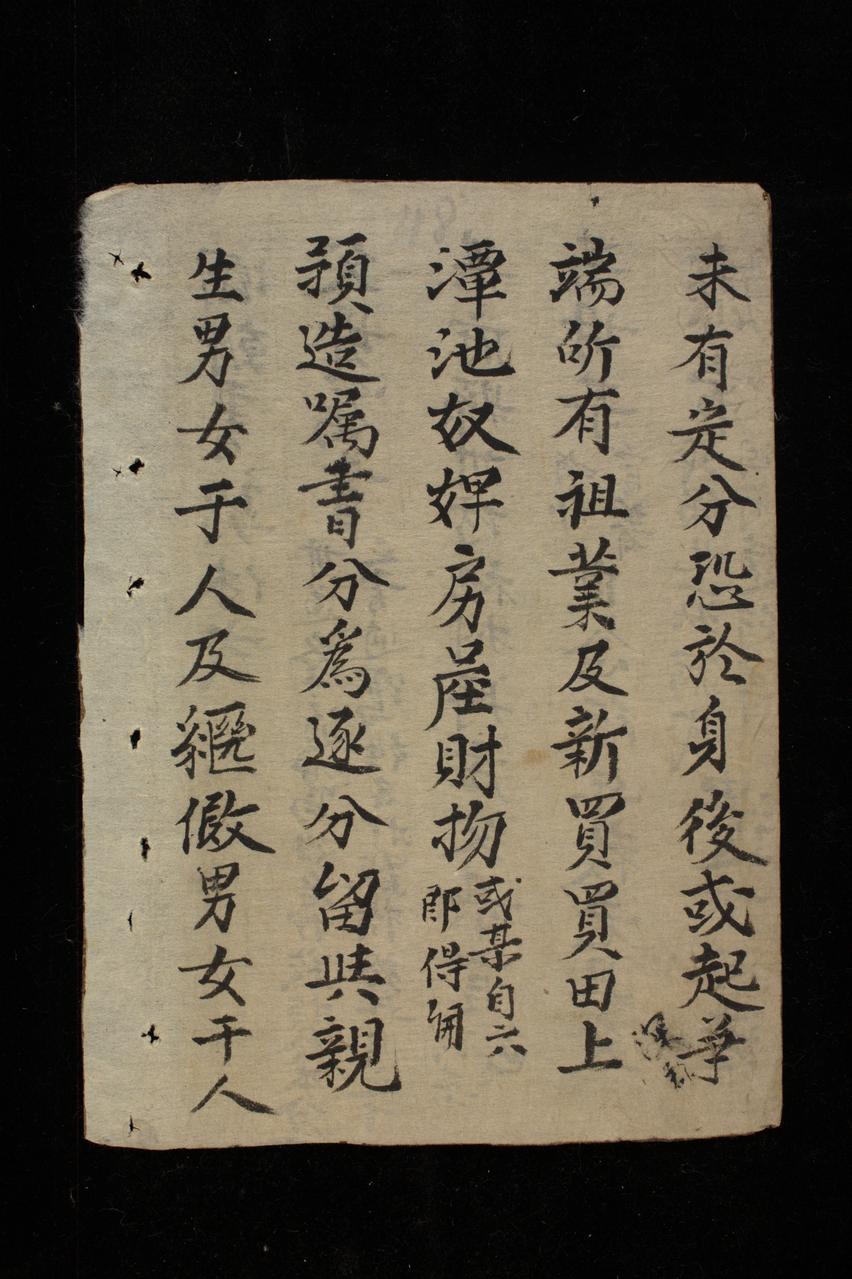 未有定分恐於身後或起爭
端所有祖業及新買買田上
潭池奴婢房座財物或某自六
即得
預造嘱書分爲逐分留與親
生男女于人及䝤假男女干人